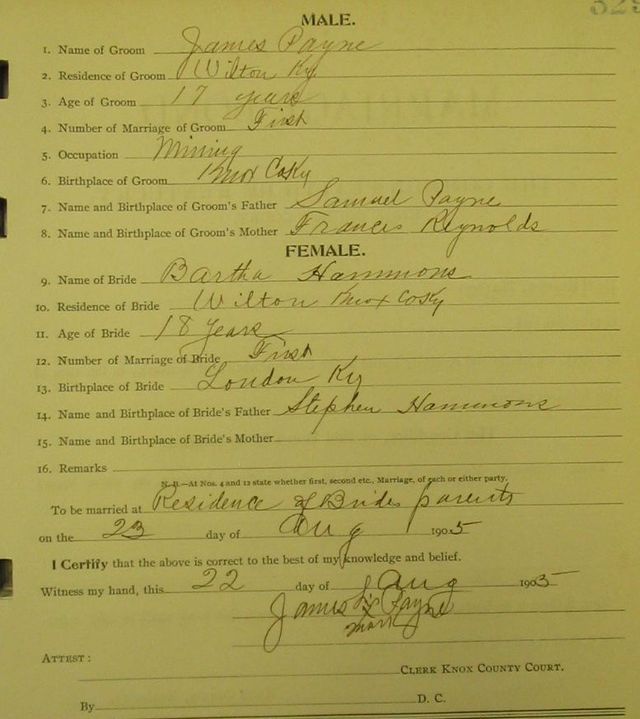 329
MALE.
1. Name of Groom James Payne
2. Residence of Groom Wilton Ky
3. Age of Groom 17 years
4. Number of Marriage of Groom First
5. Occupation Mining
6. Birthplace of Groom Knox Co Ky
7. Name and Birthplace of Groom's Father Samuel Payne
8. Name and Birthplace of Groom's Mother Frances Reynolds
FEMALE.
9. Name of Bride Bartha Hammons
10. Residence of Bride Wilton Knox Co Ky
11. Age of Bride 18 years
12. Number of Marriage of Bride First
13. Birthplace of Bride London Ky
14. Name and Birthplace of Bride's Father Stephen Hammons
15. Name and Birthplace of Bride's Mother
16. Remarks
N. B.—At Nos. 4 and 12 state whether first, second etc., Marriage, of each or either party.
To be married at Residence of Brides parents
on the 23 day of Aug 1905
I Certify that the above is correct to the best of my knowledge and belief.
Witness my hand, this 22 day of Aug 1905
James his x Payne
mark
ATTEST:
CLERK KNOX COUNTY COURT.
By D. C.